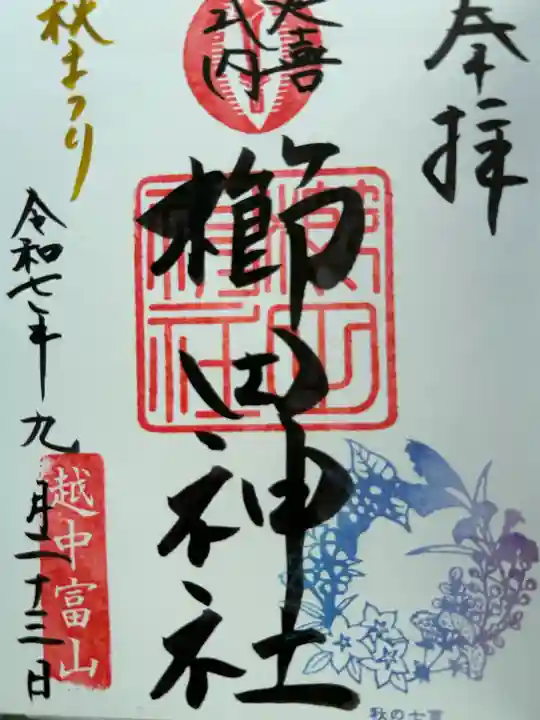 奉拝
延喜
式内
櫛田神社
櫛田
神社
秋まつり
令和七年九月二十三日
越中富山
秋の七草